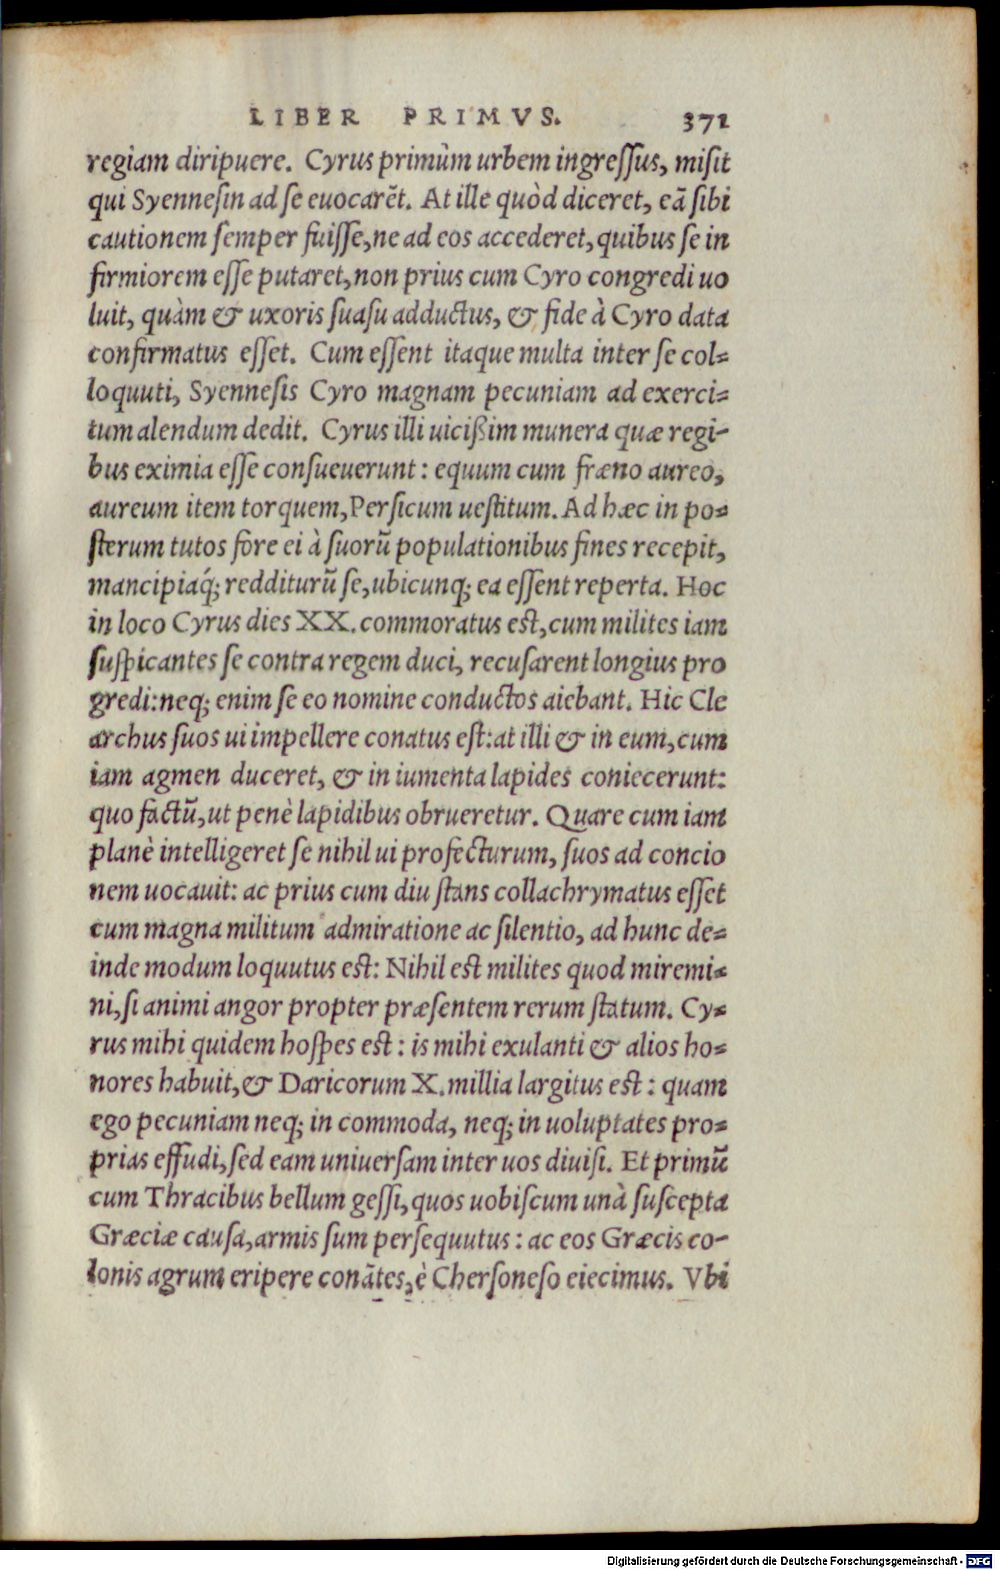 LIBER PRIMVS. 371
regiam diripuere. Cyrus primùm urbem ingreſſus, miſit
qui Syenneſin ad ſe euocarẽt. At ille quòd diceret, eã ſibi
cautionem ſemper fuiſſe, ne ad eos accederet, quibus ſe in
firmiorem eſſe putaret, non prius cum Cyro congredi uo
luit, quàm & uxoris ſuaſu adductus, & fide à Cyro data
confirmatus eſſet. Cum eſſent itaque multa inter ſe col=
loquuti, Syenneſis Cyro magnam pecuniam ad exerci=
tum alendum dedit. Cyrus illi uicißim munera quæ regi-
bus eximia eſſe conſueuerunt: equum cum fræno aureo,
aureum item torquem, Perſicum ueſtitum. Ad hæc in po=
ſterum tutos fore ei à ſuorũ populationibus fines recepit,
mancipiaq́; redditurũ ſe, ubicunq; ea eſſent reperta. Hoc
in loco Cyrus dies XX. commoratus eſt, cum milites iam
ſuſpicantes ſe contra regem duci, recuſarent longius pro
gredi: neq; enim ſe eo nomine conductos aiebant. Hic Cle
archus ſuos ui impellere conatus eſt: at illi & in eum, cum
iam agmen duceret, & in iumenta lapides coniecerunt:
quo factũ, ut penè lapidibus obrueretur. Quare cum iam
planè intelligeret ſe nihil ui profecturum, ſuos ad concio
nem uocauit: ac prius cum diu ſtans collachrymatus eſſet
cum magna militum admiratione ac ſilentio, ad hunc de=
inde modum loquutus eſt: Nihil eſt milites quod miremi=
ni, ſi animi angor propter præſentem rerum ſtatum. Cy=
rus mihi quidem hoſpes eſt: is mihi exulanti & alios ho=
nores habuit, & Daricorum X. millia largitus eſt: quam
ego pecuniam neq; in commoda, neq; in uoluptates pro=
prias effudi, ſed eam uniuerſam inter uos diuiſi. Et primũ
cum Thracibus bellum geſſi, quos uobiſcum unà ſuſcepta
Græciæ cauſa, armis ſum perſequutus: ac eos Græcis co-
lonis agrum eripere conãtes, è Cherſoneſo eiecimus. Vbi
Digitalisierung gefördert durch die Deutsche Forschungsgemeinschaft - DFG